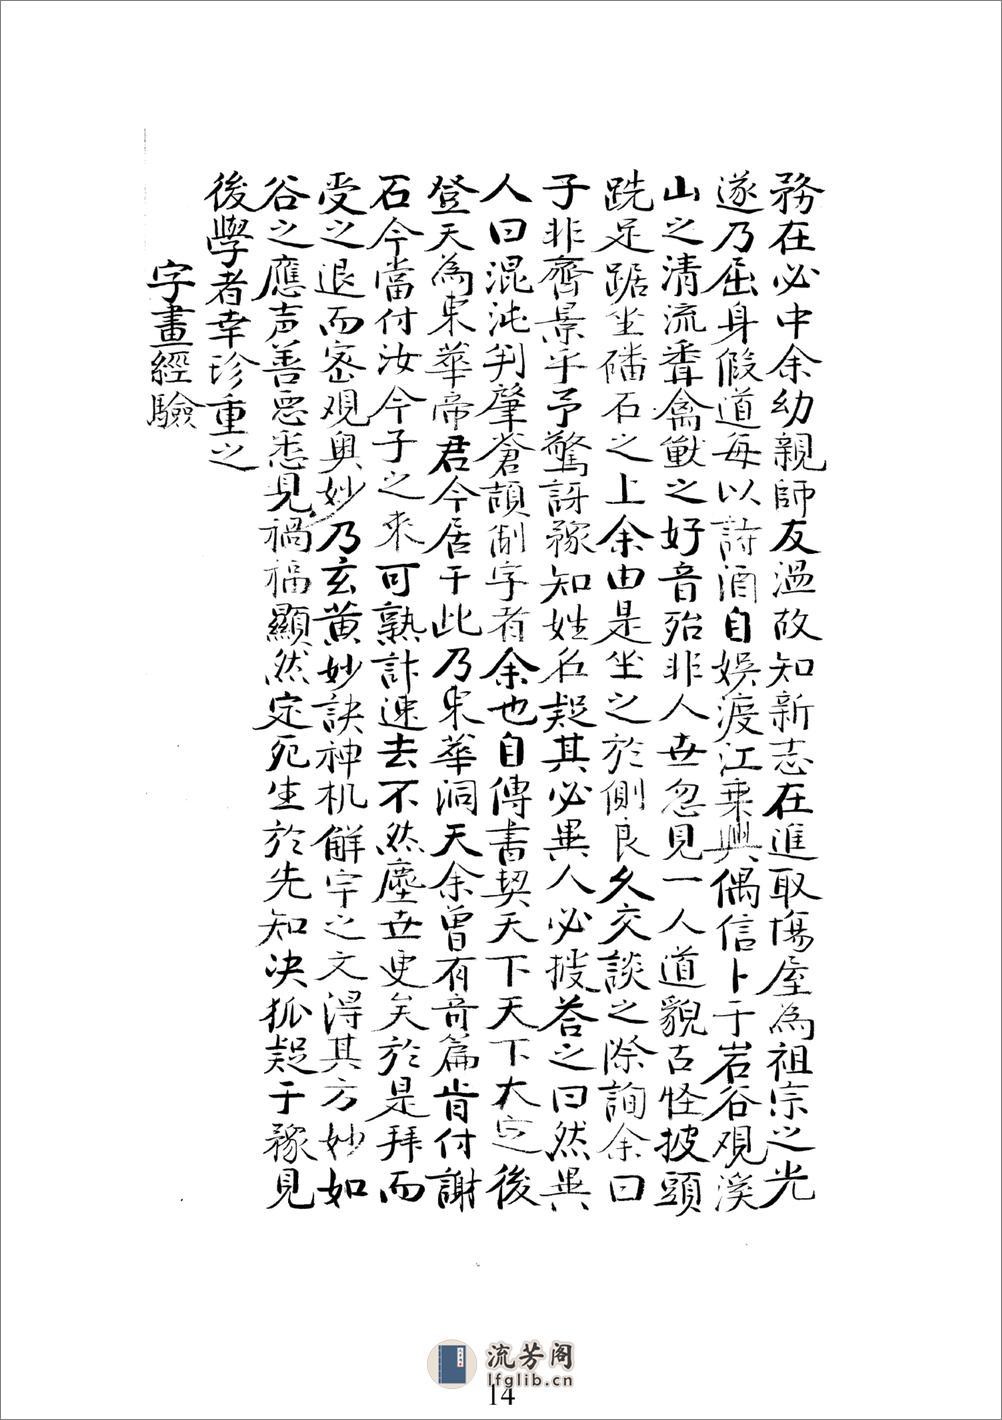 務在必中余幼親師友溫故知新志在進取塲屋為祖宗之光
遂乃屈身假道每以詩酒自娛渡江乘興偶信卜于岩谷观溪
山之清流聋禽獸之好音殆非人世忽見一人道貌古怪披頭
跣足踞坐磻石之上余由是坐之於側良久交談之際詢余曰
子非齊景乎予驚訝豫知姓名疑其必異人必披荅之曰然異
人曰混沌判肇蒼頡制字者余也自傳書契天下天下大定後
登天為东華帝君今居于此乃东華洞天余曾有奇篇肯付謝
石今當付汝今子之来可熟計速去不然塵世更矣於是拜而
受之退而密观奥妙乃玄黄妙訣神机觧字之文得其方妙如
谷之應声善恶悉見禍福顯然定死生於先知决狐疑于豫見
後學者幸珍重之
字畫經驗
流芳阁
lfglib.cn
14